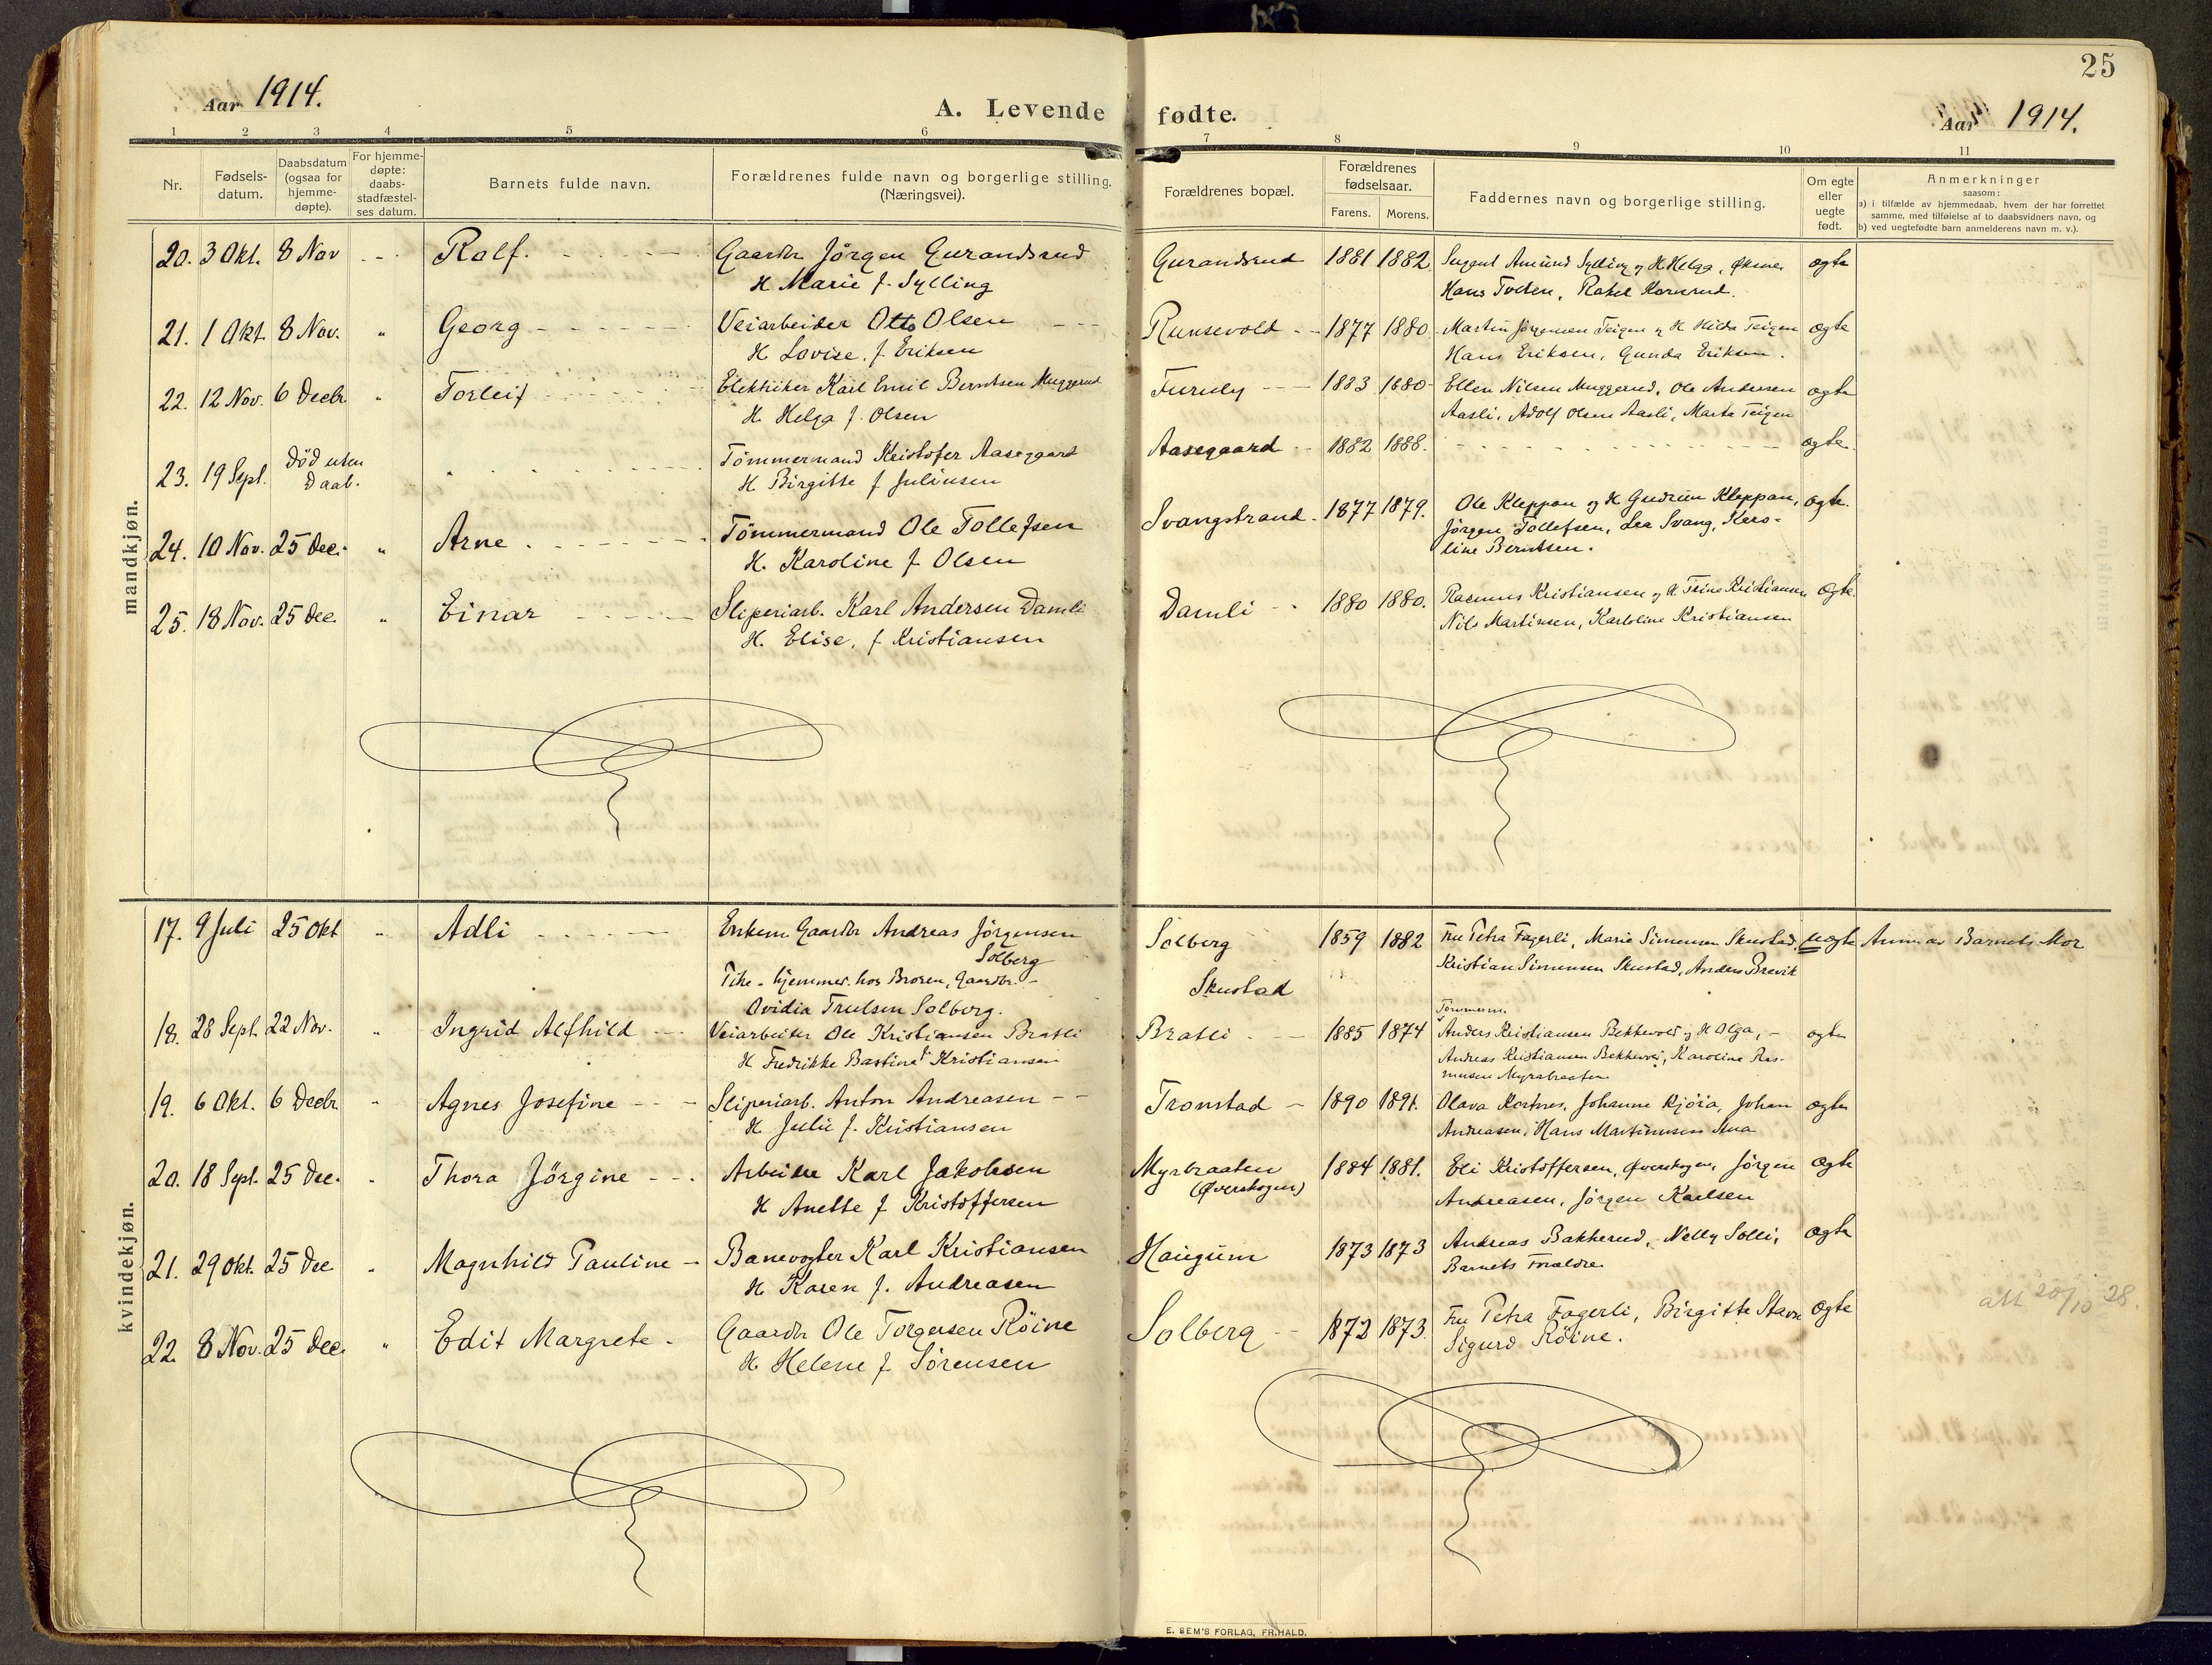 25
Aar 1914.
A. Levende fødte.
Aar 1914.
1 2 3 4 5 6 7 8 9 10 11
Nr.
Fødsels-
datum.
Daabsdatum
(ogsaa for
hjemme-
døpte).
For hjemme-
døpte:
daabs-
stadfæstel-
ses datum.
Barnets fulde navn.
Forældrenes fulde navn og borgerlige stilling.
(Næringsvei).
Forældrenes bopæl.
Forældrenes
fødselsaar.
Farens. Morens.
Faddernes navn og borgerlige stilling.
Om egte
eller
uegte
født.
Anmerkninger
saasom:
a) i tilfælde av hjemmedaab, hvem der har forrettet
samme, med tilføielse af to daabsvidners navn, og
b) ved uegtefødte barn anmelderens navn m. v.).
mandkjøn.
20. 3 Okt. 8 Nov Rolf. Gaardbr Jörgen Gurandsrud Gurandsrud 1881 1882 Amund Sylling og H Helga,
H Marie f. Sylling Hans Tveten, Rakel
ægte
21. 1 Okt. 8 Nov. " Georg Veiarbeider Otto Olsen Runsevold 1877 1880 Martin Jörgensen Teigen og H Hilda Teigen ægte
H. Lovise, f Eriksen Hans Eriksen, Gunda Eriksen.
22. 12 Nov. 6 Decbr " Torleif Elektriker Karl Emil Berntsen Muggerud Furuly 1883 1880 Ellen Nilsen Muggerud, Ole Andersen ægte
H. Helga f. Olsen Aasli, Adolf Olsen Aasli, Marta Teigen
23. 19 Sept. Död uten Tömmermand Kristofer Aasegaard Aasegaard 1882 1888. ægte.
Daab. H Birgitte f Juliusen
24. 10 Nov. 25 Dec. " Arne Tömmermand Ole Tollefsen Svangstrand 1877 1879. Ole Kleppan og H Gudrun Kleppan, ægte.
H. Karoline f Olsen Jörgen Tollefsen, Lea Svang, Karo-
line Berntsen.
25. 18 Nov. 25 Dec. " Einar Sliperiarb. Karl Andersen Damli Damli 1880 1880. Rasmus Kristiansen og H Trine Kristiansen ægte
H. Elise, f Kristiansen Nils Martinsen, Karoline Kristiansen
kvindekjøn.
17. 9 Juli 25 Okt " Adli Enkem. Gaardbr Andreas Jörgensen Solberg 1859 1882 Fru Petra Fagerli, Marie Simensen Skustad, uægte Anm. av Barnets Mor
Solberg Kristian Simensen Skustad, Anders Brevik
Pike hjemmev. hos Broren, Gaardbr. Skustad
Ovidia Trulsen Solberg.
18. 28 Sept. 22 Nov. " Ingrid Alfhild Veiarbeider Ole Kristiansen Bratli Bratli 1885 1874 Tömmerm.
Anders Kristiansen Bekkevold og H Olga, ægte
H Fredrikke Bastine f Kristiansen Andreas Kristiansen Bekkevol, Karoline Ras-
musen Myrabraaten
19. 6 Okt. 6 Decbr " Agnes Josefine Sliperiarb. Anton Andreasen Tronstad 1890 1891. Olava Kortnes, Johanne Kjöia, Johan ægte
H. Julie f. Kristiansen Andreasen, Hans Martinusen Stua
20. 18 Sept. 25 Dec. " Thora Jörgine Arbeider Karl Jakobsen Myrbraaten 1884 1881. Eli Kristoffersen, Øverskogen, Jörgen ægte
H Anette f Kristoffersen (Øverskogen) Andreasen, Jörgen Karlsen
21. 29 Okt. 25 Dec " Magnhild Pauline Banevogter Karl Kristiansen Haugum 1873 1873 Andreas Bakkerud, Nelly Solli, ægte
H Karen f. Andreasen Barnets Foraldre
att 20/10 28.
22. 8 Nov. 25 Dec. " Edit Margrete Gaardbr Ole Torgersen Röine Solberg 1872 1873. Fru Petra Fagerli, Birgitte Stavn ægte
H Helene f Sörensen Sigurd Röine.
E. SEM'S FORLAG, FR.HALD.